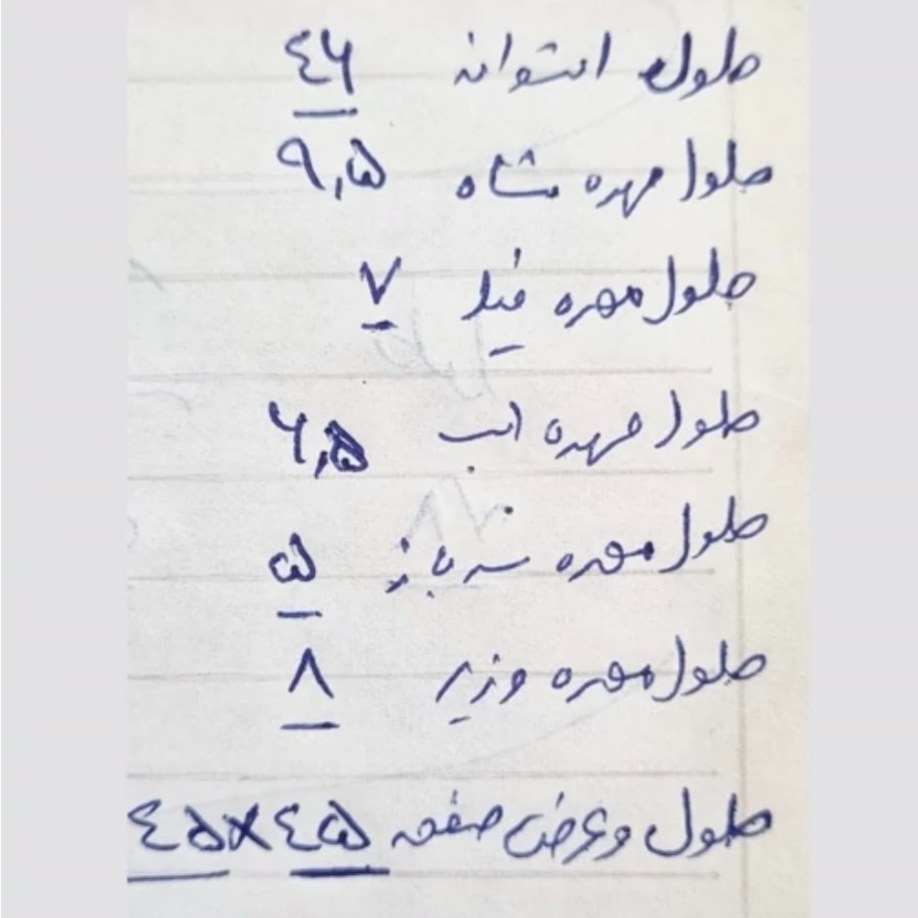 طول استوانه ۴۶
طول مهره شاه ۹٫۵
طول مهره فیل ۷
طول مهره اسب ۶٫۵
طول مهره سرباز ۵
طول مهره وزیر ۸
طول و عرض صفحه ۴۵×۴۵